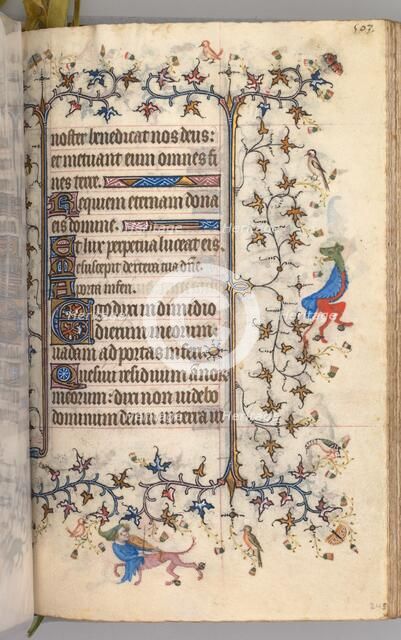 507.
noster benedicat nos deus:
et metuant eum omnes fi
nes terre.
Requiem eternam dona
eis domine.
Et lux perpetua luceat eis.
Me suscepit dextera tua dñe.
A porta inferi.
Ego dixi in dimidio
dierum meorum:
vadam ad portas inferi.
Quesivi residuum annor
meorum: dixi non videbo
dominum deum in terra vi
245
Heritage